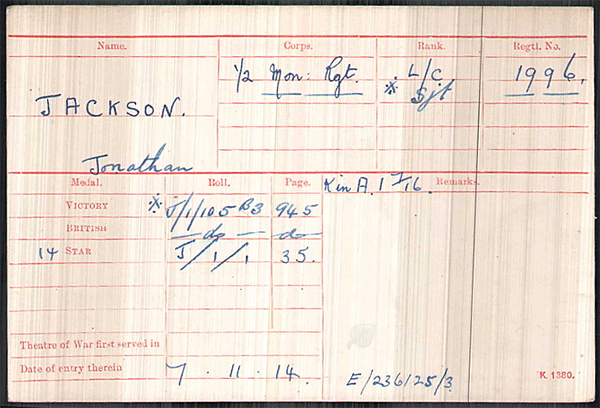 Name. Corps. Rank. Regtl. No.
1/2 Mon: Rgt. L/C 1996.
※ Sjt
JACKSON.
Jonathan
Medal. Roll. Page. Kin A. 1/7/16. Remarks.
VICTORY ※ J/1/105 B3 945
BRITISH — do — — do —
14 STAR J/1/1 35.
Theatre of War first served in
Date of entry therein 7 . 11 . 14. E/236/25/3. K. 1380.